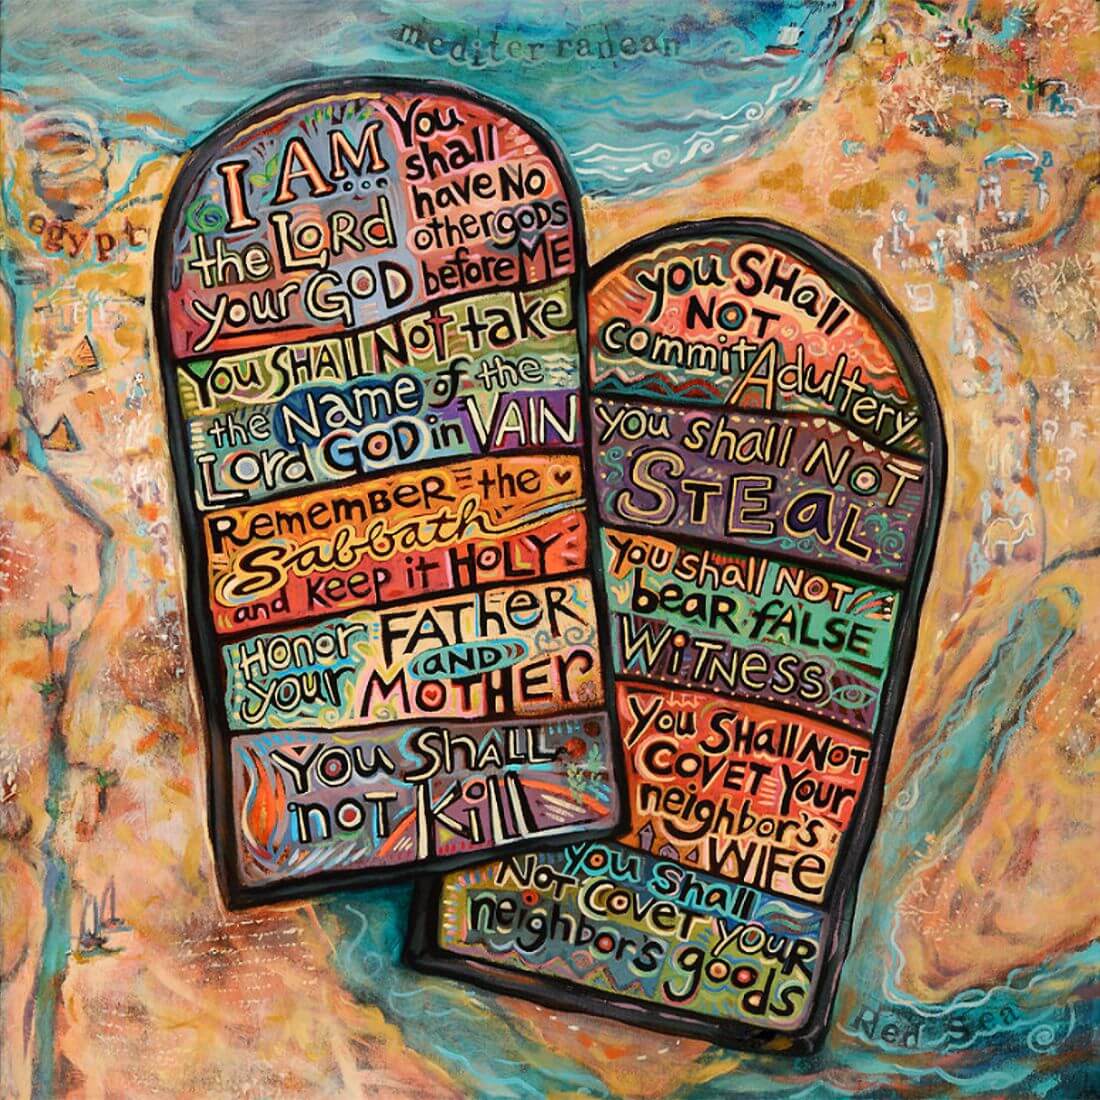 mediterranean
egypt
I AM...
the LORd
your GOD
You
shall
have NO
other gods
before ME
You SHALL NOT take
the Name of the
Lord GOD in VAIN
Remember the
Sabbath
and keep it HOLY
Honor FATher
your AND
MOTHEr
YOU SHALL
noT Kill
you SHall
NOT
commit Adultery
you shall NOT
STEaL
you shall NOT
bear fALSE
WiTNESS
YOU SHall NOT
COVET YOur
neighbor's
WIFe
you shall
NOT Covet your
neighbor's goods
Red Sea